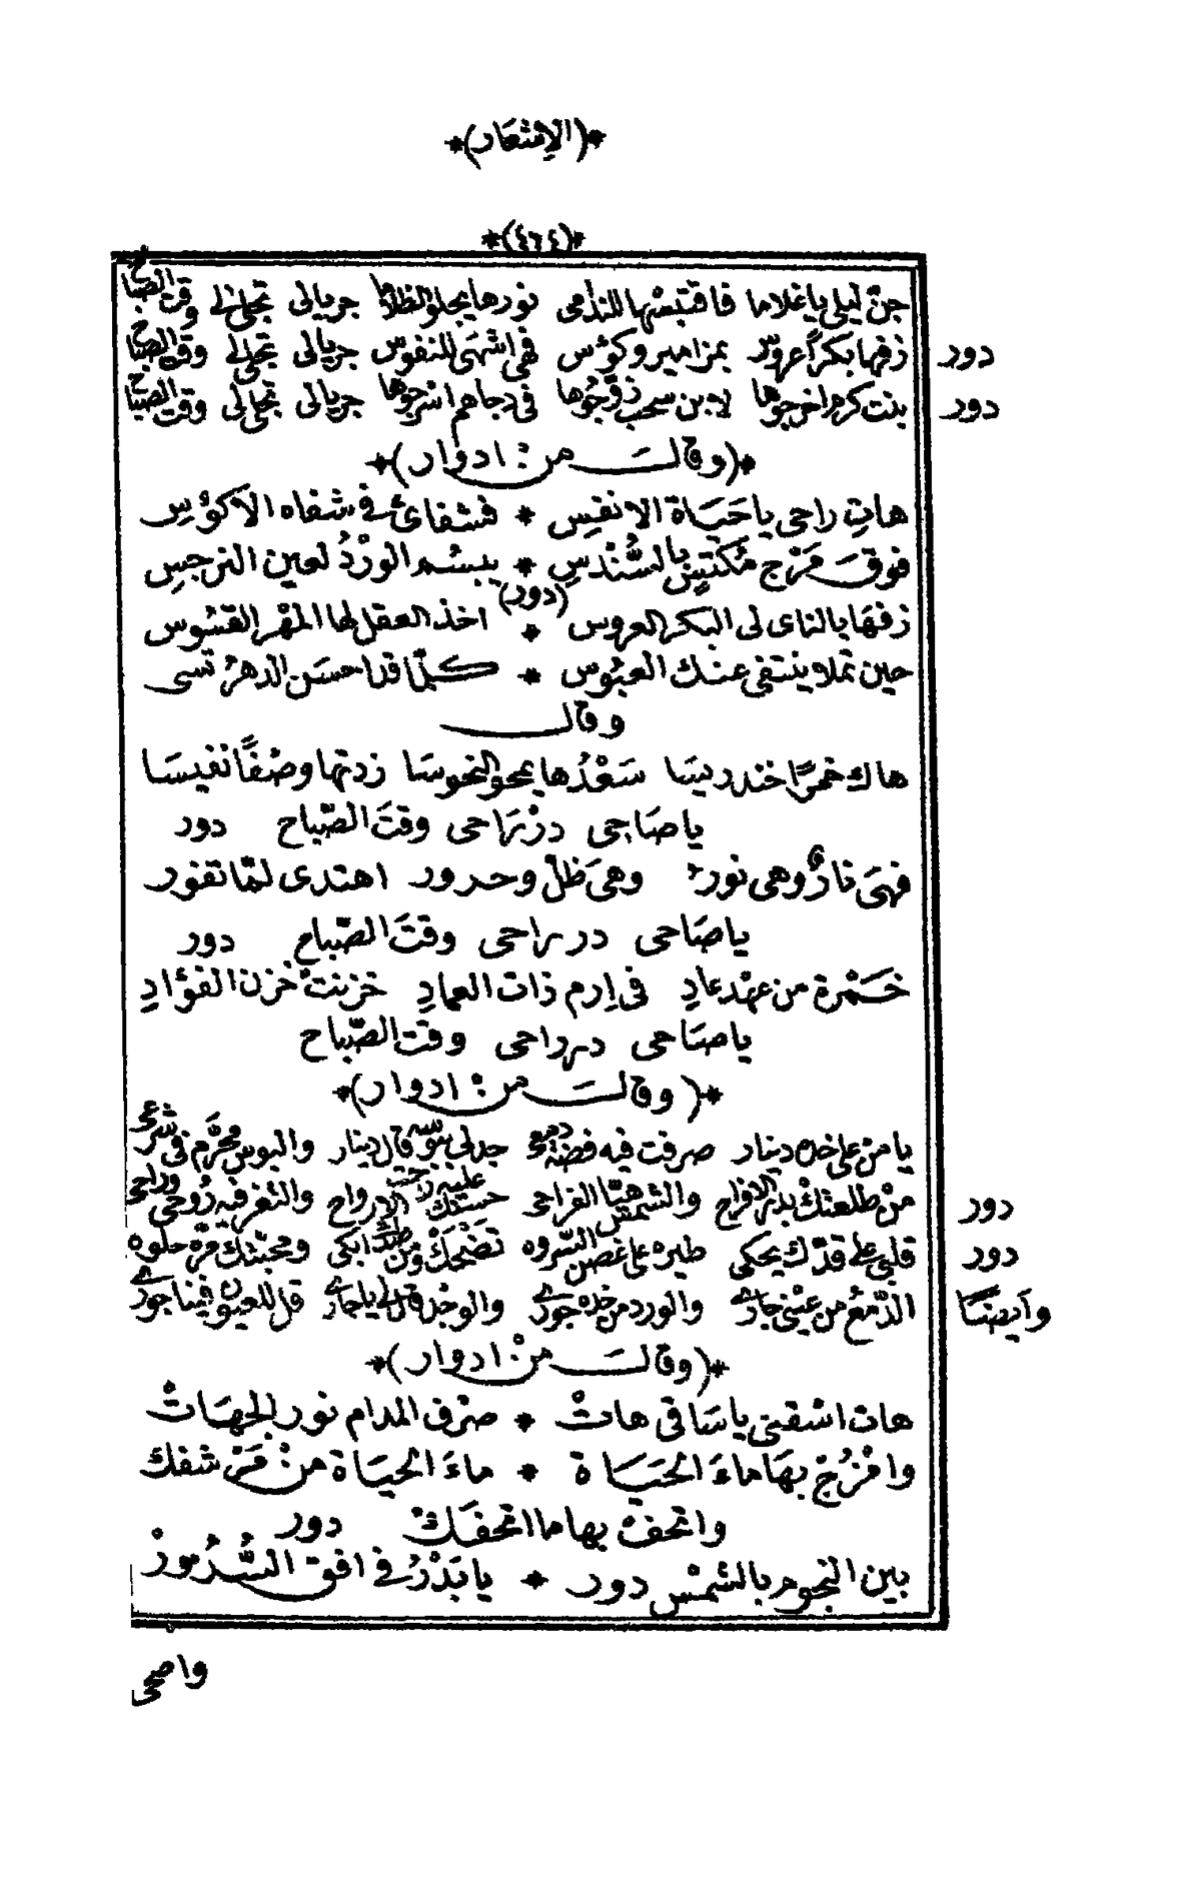 *(الاشعار)*
*(٤٦٤)*
جن ليلى ياغلاما فاقتبسها للندامى نورها يجلو الظلاما جريالى تجلى لى وقت الصباح
دور زفها بكرا عروس بمزامير وكؤس فهى اشهى للنفوس جريالى تجلى لى وقت الصباح
دور بنت كرم اخرجوها لابن سحب زوجوها فى دجاهم اسرجوها جريالى تجلى لى وقت الصباح
*(وقالت من ادوار)*
هاتِ راحى ياحَيَاة الانفسِ * فشفائ فى شفاه الاكؤسِ
فوق مَرْج مُكتسٍ بالسُّنْدسِ * يبسُم الورْدُ لعين النرجسِ
(دور)
زفهَا بالناى لى البكر العروس * اخذ العقل لها المهْر القسُوس
حين تملا ينتفى عنك العبُوس * كلّما قد احسَن الدهرُ تسى
وقال
هاك خمرًا خندريسَا سَعْدُها يمحو النحوسَا زدتها وصْفًا نفيسَا
ياصَاحِى درْبرَاحى وقتَ الصّباح دور
فهىَ نارٌ وهى نور وهىَ ظلّ وحرور اهتدى لمّا تفور
ياصَاحى در براحى وقتَ الصّباح دور
خَمْرة من عهْد عادِ فى اِرم ذات العمادِ خزنتْ خزن الفؤادِ
ياصَاحى در براحى وقت الصّباح
*(وقالت من ادوار)*
يامن على خده دينار صرفت فيه فضة دمعى جدلى ببوسه قال دينار والبوس محرّم فى شرعى
دور منْ طلعتكْ بدر الافراح والشمس الفراحى حسنك الارواح والثغر فيه رُوحى وراحى
دور قلبى على قدّك يحكى طيره على غصن السّروه تضحكْ ومن صدّك ابكى ومحبّتك مرّه حلوه
وايضًا الدّمعُ من عينى جارى والورد من خده جورى والوجْد قال لى ياجارى قل للعيون فينا جورى
*(وقالت منْ ادوار)*
هات اسْقنى ياسَاقى هاتْ * صرْف المدام نور الجهَاتْ
وامْزُجْ بهَا ماءَ الحيَاة * ماءَ الحيَاة منْ مَرْشفك
واتحفهْ بها مااتحفَكْ دور
بين النجوم بالشمْس دور * يابَدْرُ فى افق السُّرُورْ
واضحى